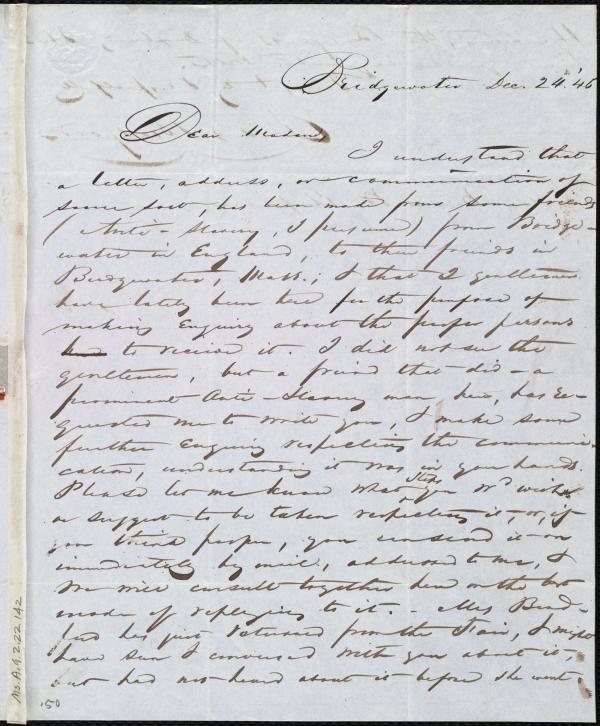 Bridgewater Dec. 24. '46
Dear Madam,
I understand that
a letter, address, or communication of
some sort, has been made from some friends
(Anti-Slavery, I presume) from Bridge-
water in England, to their friends in
Bridgewater, Mass.; & that 2 gentlemen
have lately been here for the purpose of
making enquiry about the proper persons
to receive it. I did not see the
gentlemen, but a friend that did - a
prominent Anti-Slavery man here, has re-
quested me to write you, & make some
further enquiry respecting the communi-
cation, understanding it was in your hands.
Please let me know what steps you wd wish
or suggest to be taken respecting it, or, if
you think proper, you can send it on
immediately by mail, addressed to me, &
we will consult together here on the best
mode of replying to it. - Mrs Brad-
ford has just returned from the Fair, & might
have seen & conversed with you about it,
but had not heard about it before she went.
Ms. A. 9. 2. 22. 142
150